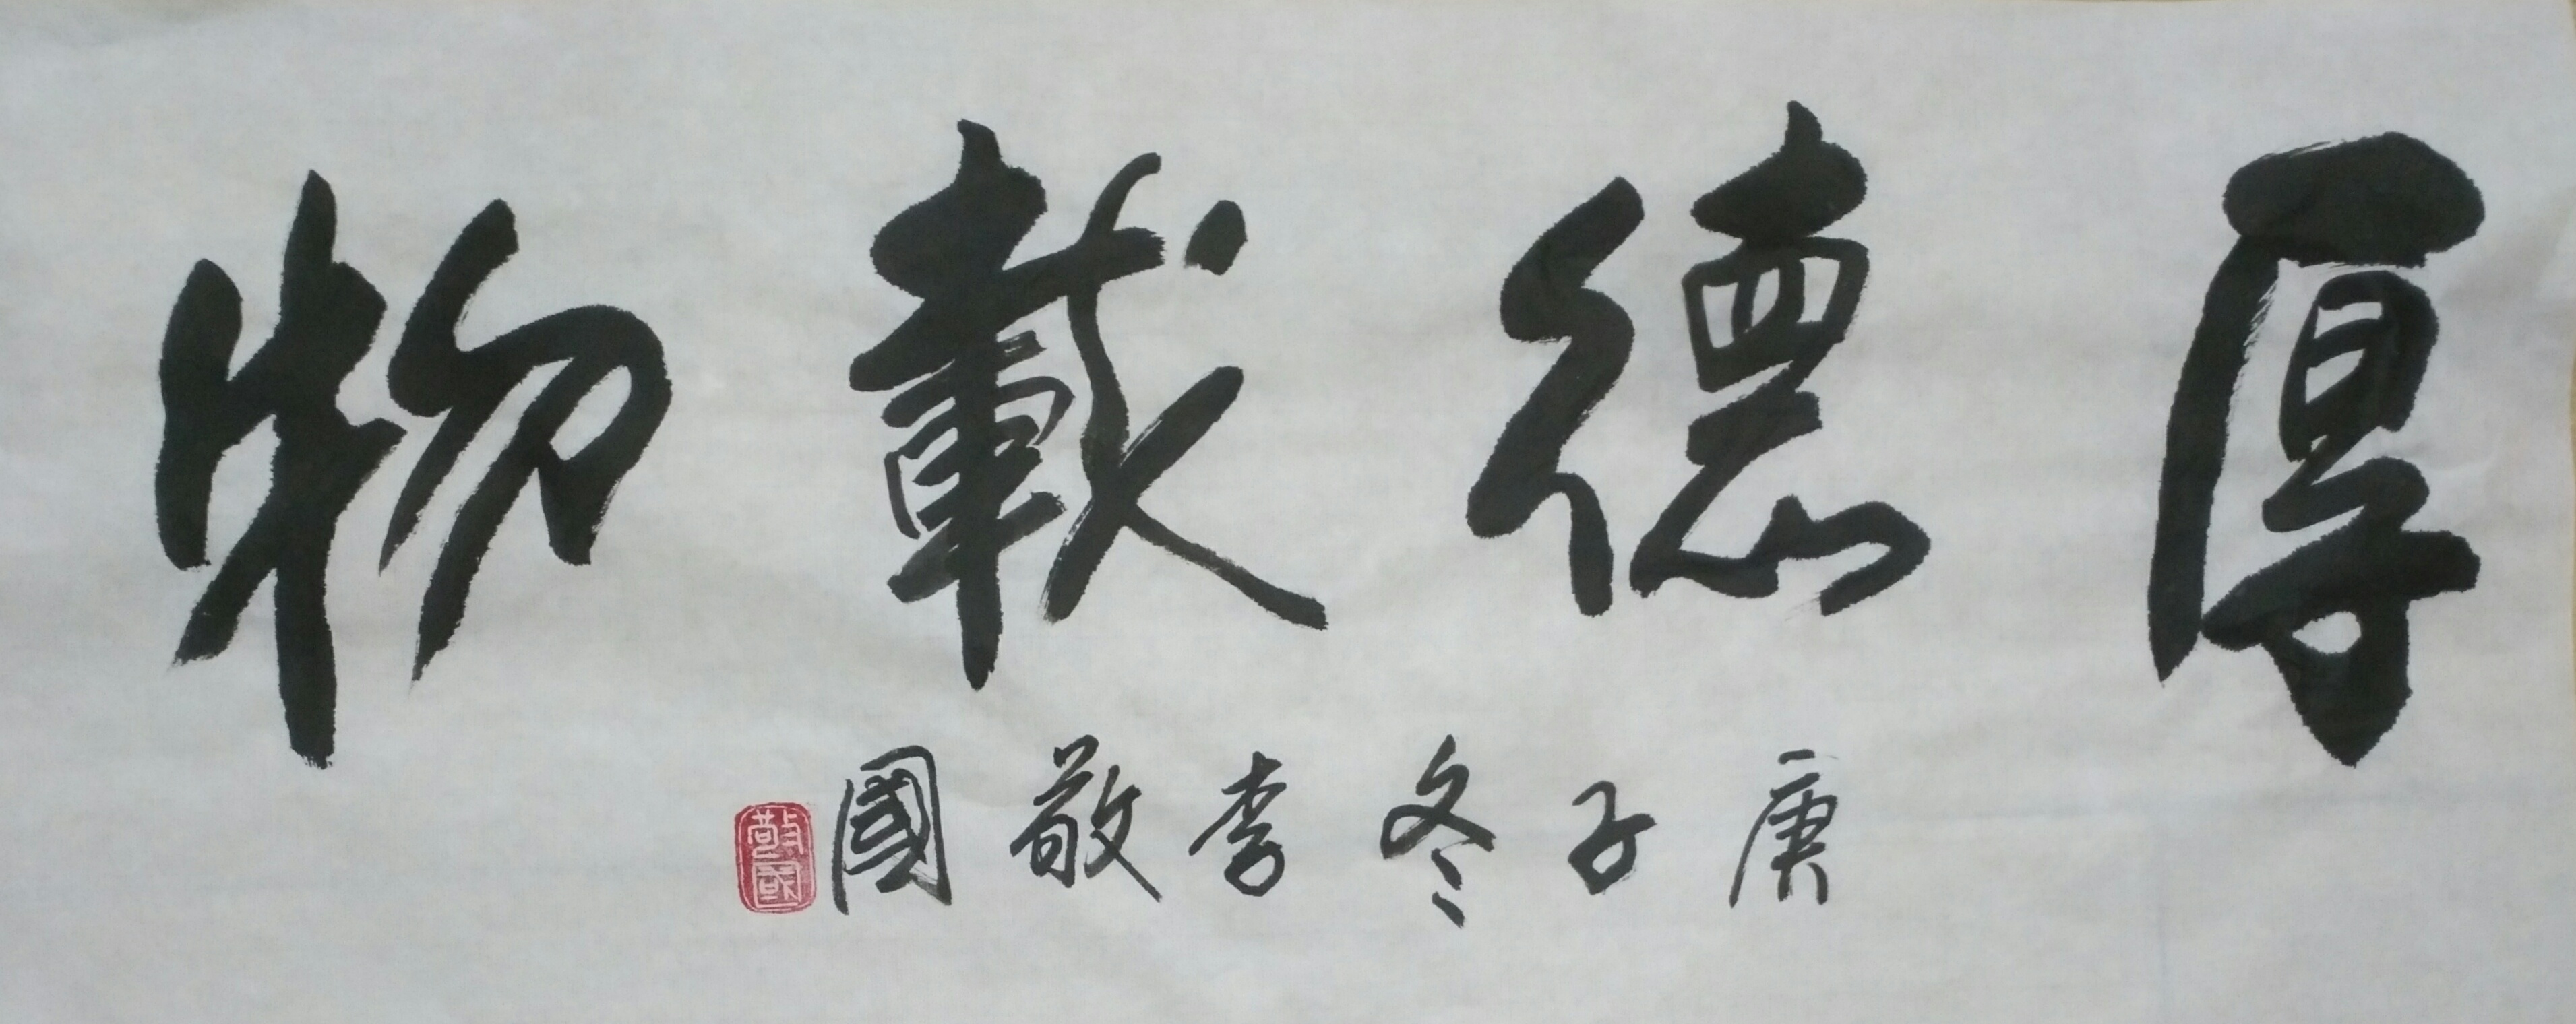 厚德載物
庚子冬李敬國
敬國